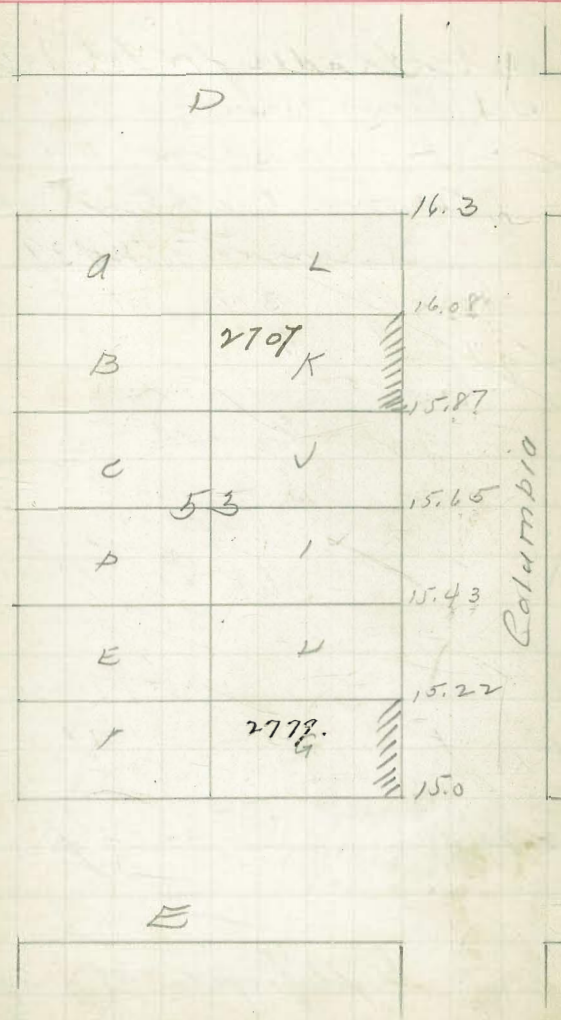 D
16.3
a L
16.08
2707
B K
15.87
C J
53
15.65
D I
15.43
E H
15.22
F 2779.
G
15.0
Columbia
E